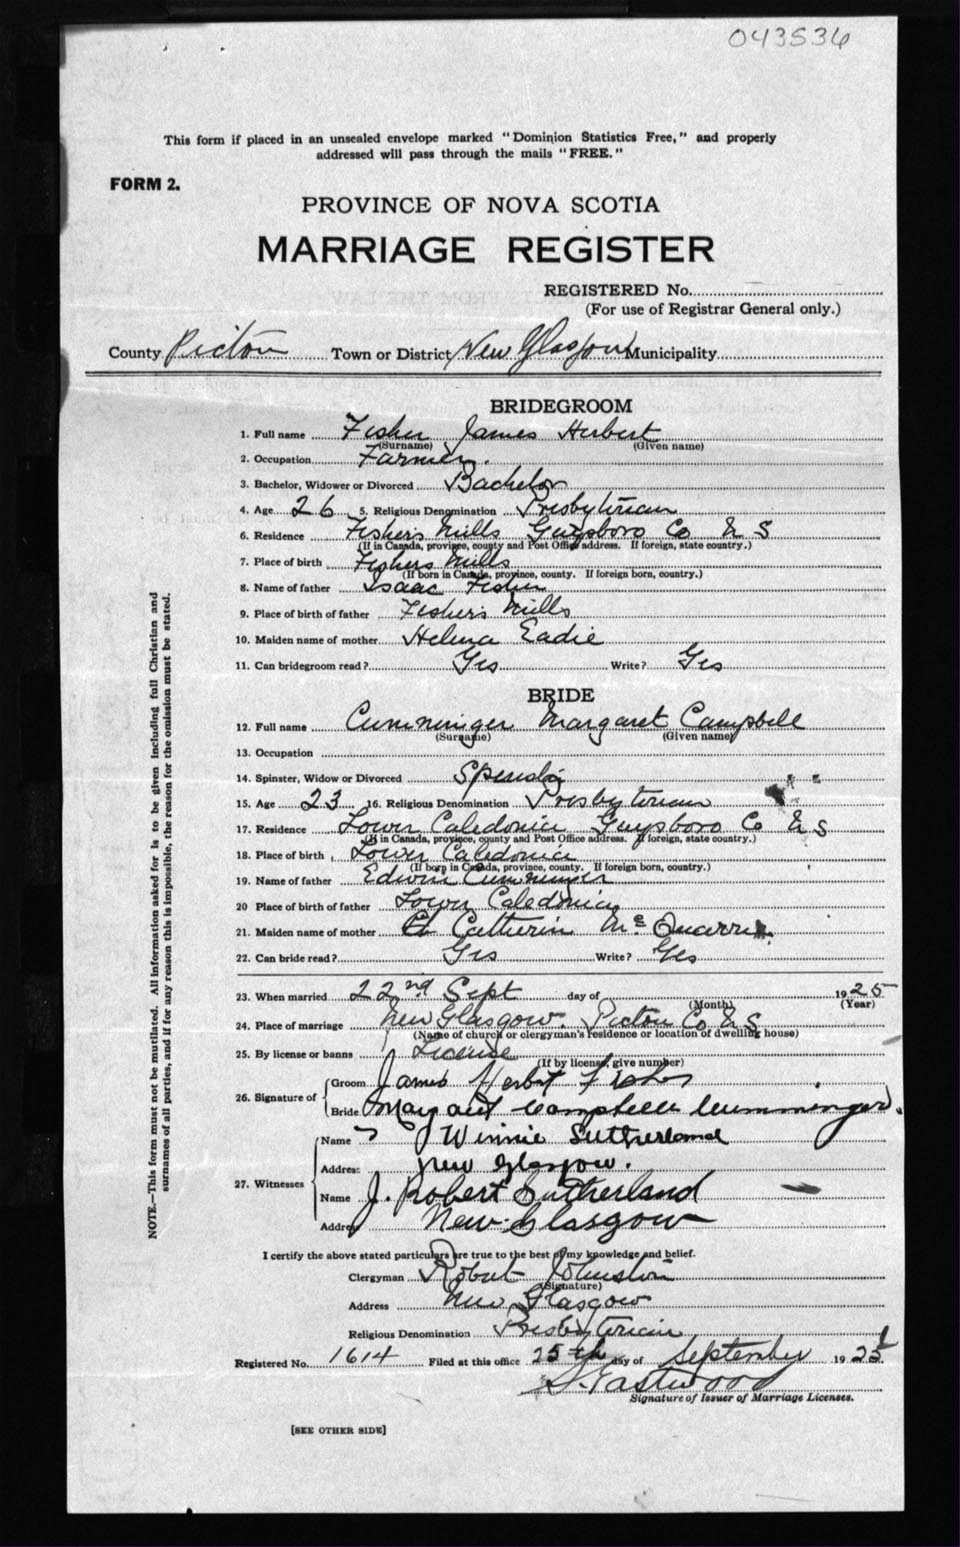 043536
This form if placed in an unsealed envelope marked "Dominion Statistics Free," and properly
addressed will pass through the mails "FREE."
FORM 2.
PROVINCE OF NOVA SCOTIA
MARRIAGE REGISTER
REGISTERED No.
(For use of Registrar General only.)
County Pictou Town or District New Glasgow Municipality
BRIDEGROOM
1. Full name Fisher James Herbert
(Surname) (Given name)
2. Occupation Farmer.
3. Bachelor, Widower or Divorced Bachelor
4. Age 26 5. Religious Denomination Presbyterian
6. Residence Fishers Mills Guysboro Co N S
(If in Canada, province, county and Post Office address. If foreign, state country.)
7. Place of birth Fishers Mills
(If born in Canada, province, county. If foreign born, country.)
8. Name of father Isaac Fisher
9. Place of birth of father Fishers Mills
10. Maiden name of mother Helena Eadie
11. Can bridegroom read? Yes Write? Yes
BRIDE
12. Full name Cumminger Margaret Campbell
(Surname) (Given name)
13. Occupation
14. Spinster, Widow or Divorced Spinster
15. Age 23 16. Religious Denomination Presbyterian
17. Residence Lower Caledonia Guysboro Co N S
(If in Canada, province, county and Post Office address. If foreign, state country.)
18. Place of birth Lower Caledonia
(If born in Canada, province, county. If foreign born, country.)
19. Name of father Edwin Cumminger
20 Place of birth of father Lower Caledonia
21. Maiden name of mother Catherin Mc Quarrie
22. Can bride read? Yes Write? Yes
23. When married 22nd Sept day of 1925
(Month) (Year)
24. Place of marriage New Glasgow. Pictou Co N S
(Name of church or clergyman's residence or location of dwelling house)
25. By license or banns License
(If by license, give number)
26. Signature of Groom James Herbert Fisher
Bride Margaret Campbell Cumminger.
27. Witnesses Name Winnie Sutherland
Address New Glasgow.
Name J. Robert Sutherland
Address New Glasgow
I certify the above stated particulars are true to the best of my knowledge and belief.
Clergyman Robert Johnston
(Signature)
Address New Glasgow
Religious Denomination Presbyterian
Registered No. 1614 Filed at this office 25th day of September 1925
S. Eastwood
Signature of Issuer of Marriage Licenses.
[SEE OTHER SIDE]
NOTE.—This form must not be mutilated. All information asked for is to be given including full Christian and
surnames of all parties, and if for any reason this is impossible, the reason for the omission must be stated.